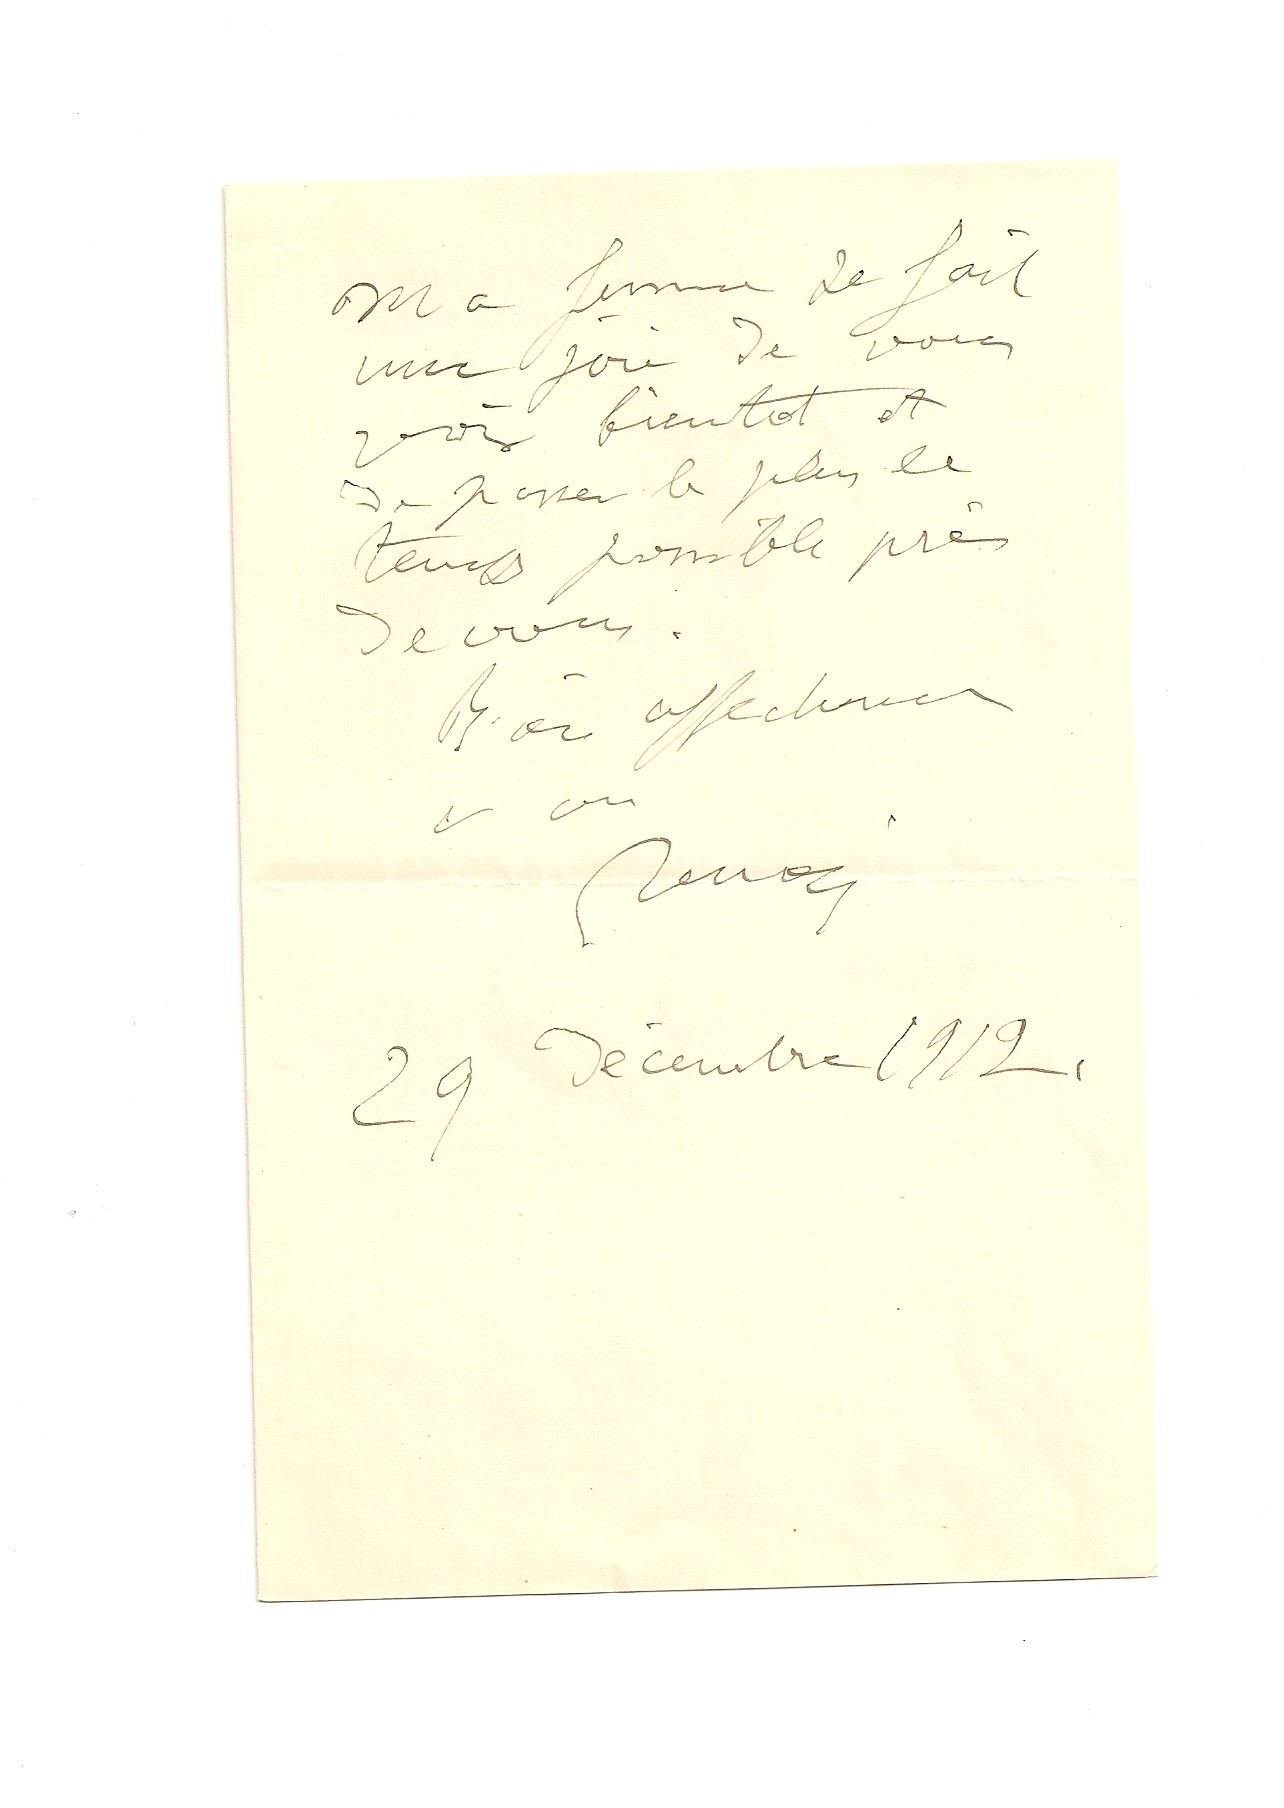 Ma femme se fait
une joie de vous
voir bientot et
de passer le plus de
temps possible près
de vous.
Bien affectueus
Renoir
29 Décembre 1912.